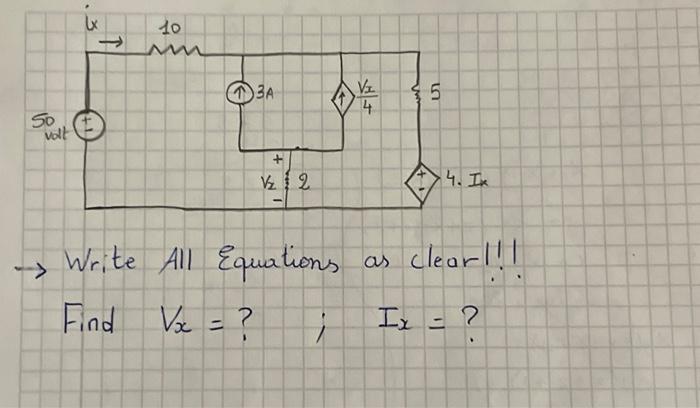 ix
10
3A
Vx/4
5
50 volt
+
-
+
Vx
2
-
+
-
4. Ix
→ Write All Equations as clear!!!
Find Vx = ? ; Ix = ?